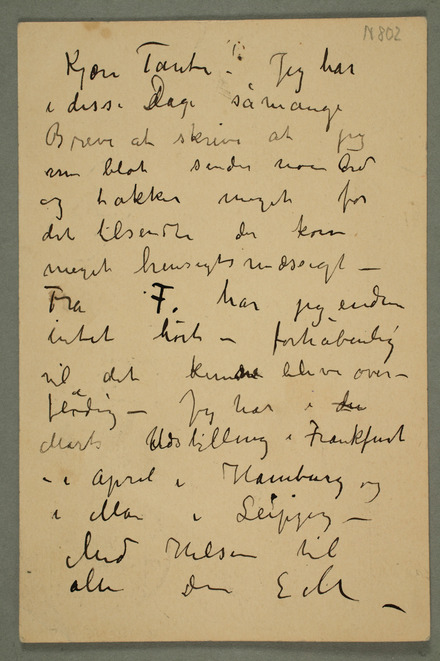 N 802
Kjære Tante – Jeg har
i disse Dage såmange
Breve at skrive at jeg
nu blot sender noen Ord
og takker meget for
det tilsendte der kom
meget hensigtsmæssigt –
Fra F. har jeg endnu
intet hørt – forhåbentlig
vil det kunne blive over-
flødig – Jeg har i
Marts Udstilling i Frankfurt
– i April i Hamburg og
i Mai i Leipzig –
Med Hilsen til
alle Din E M –